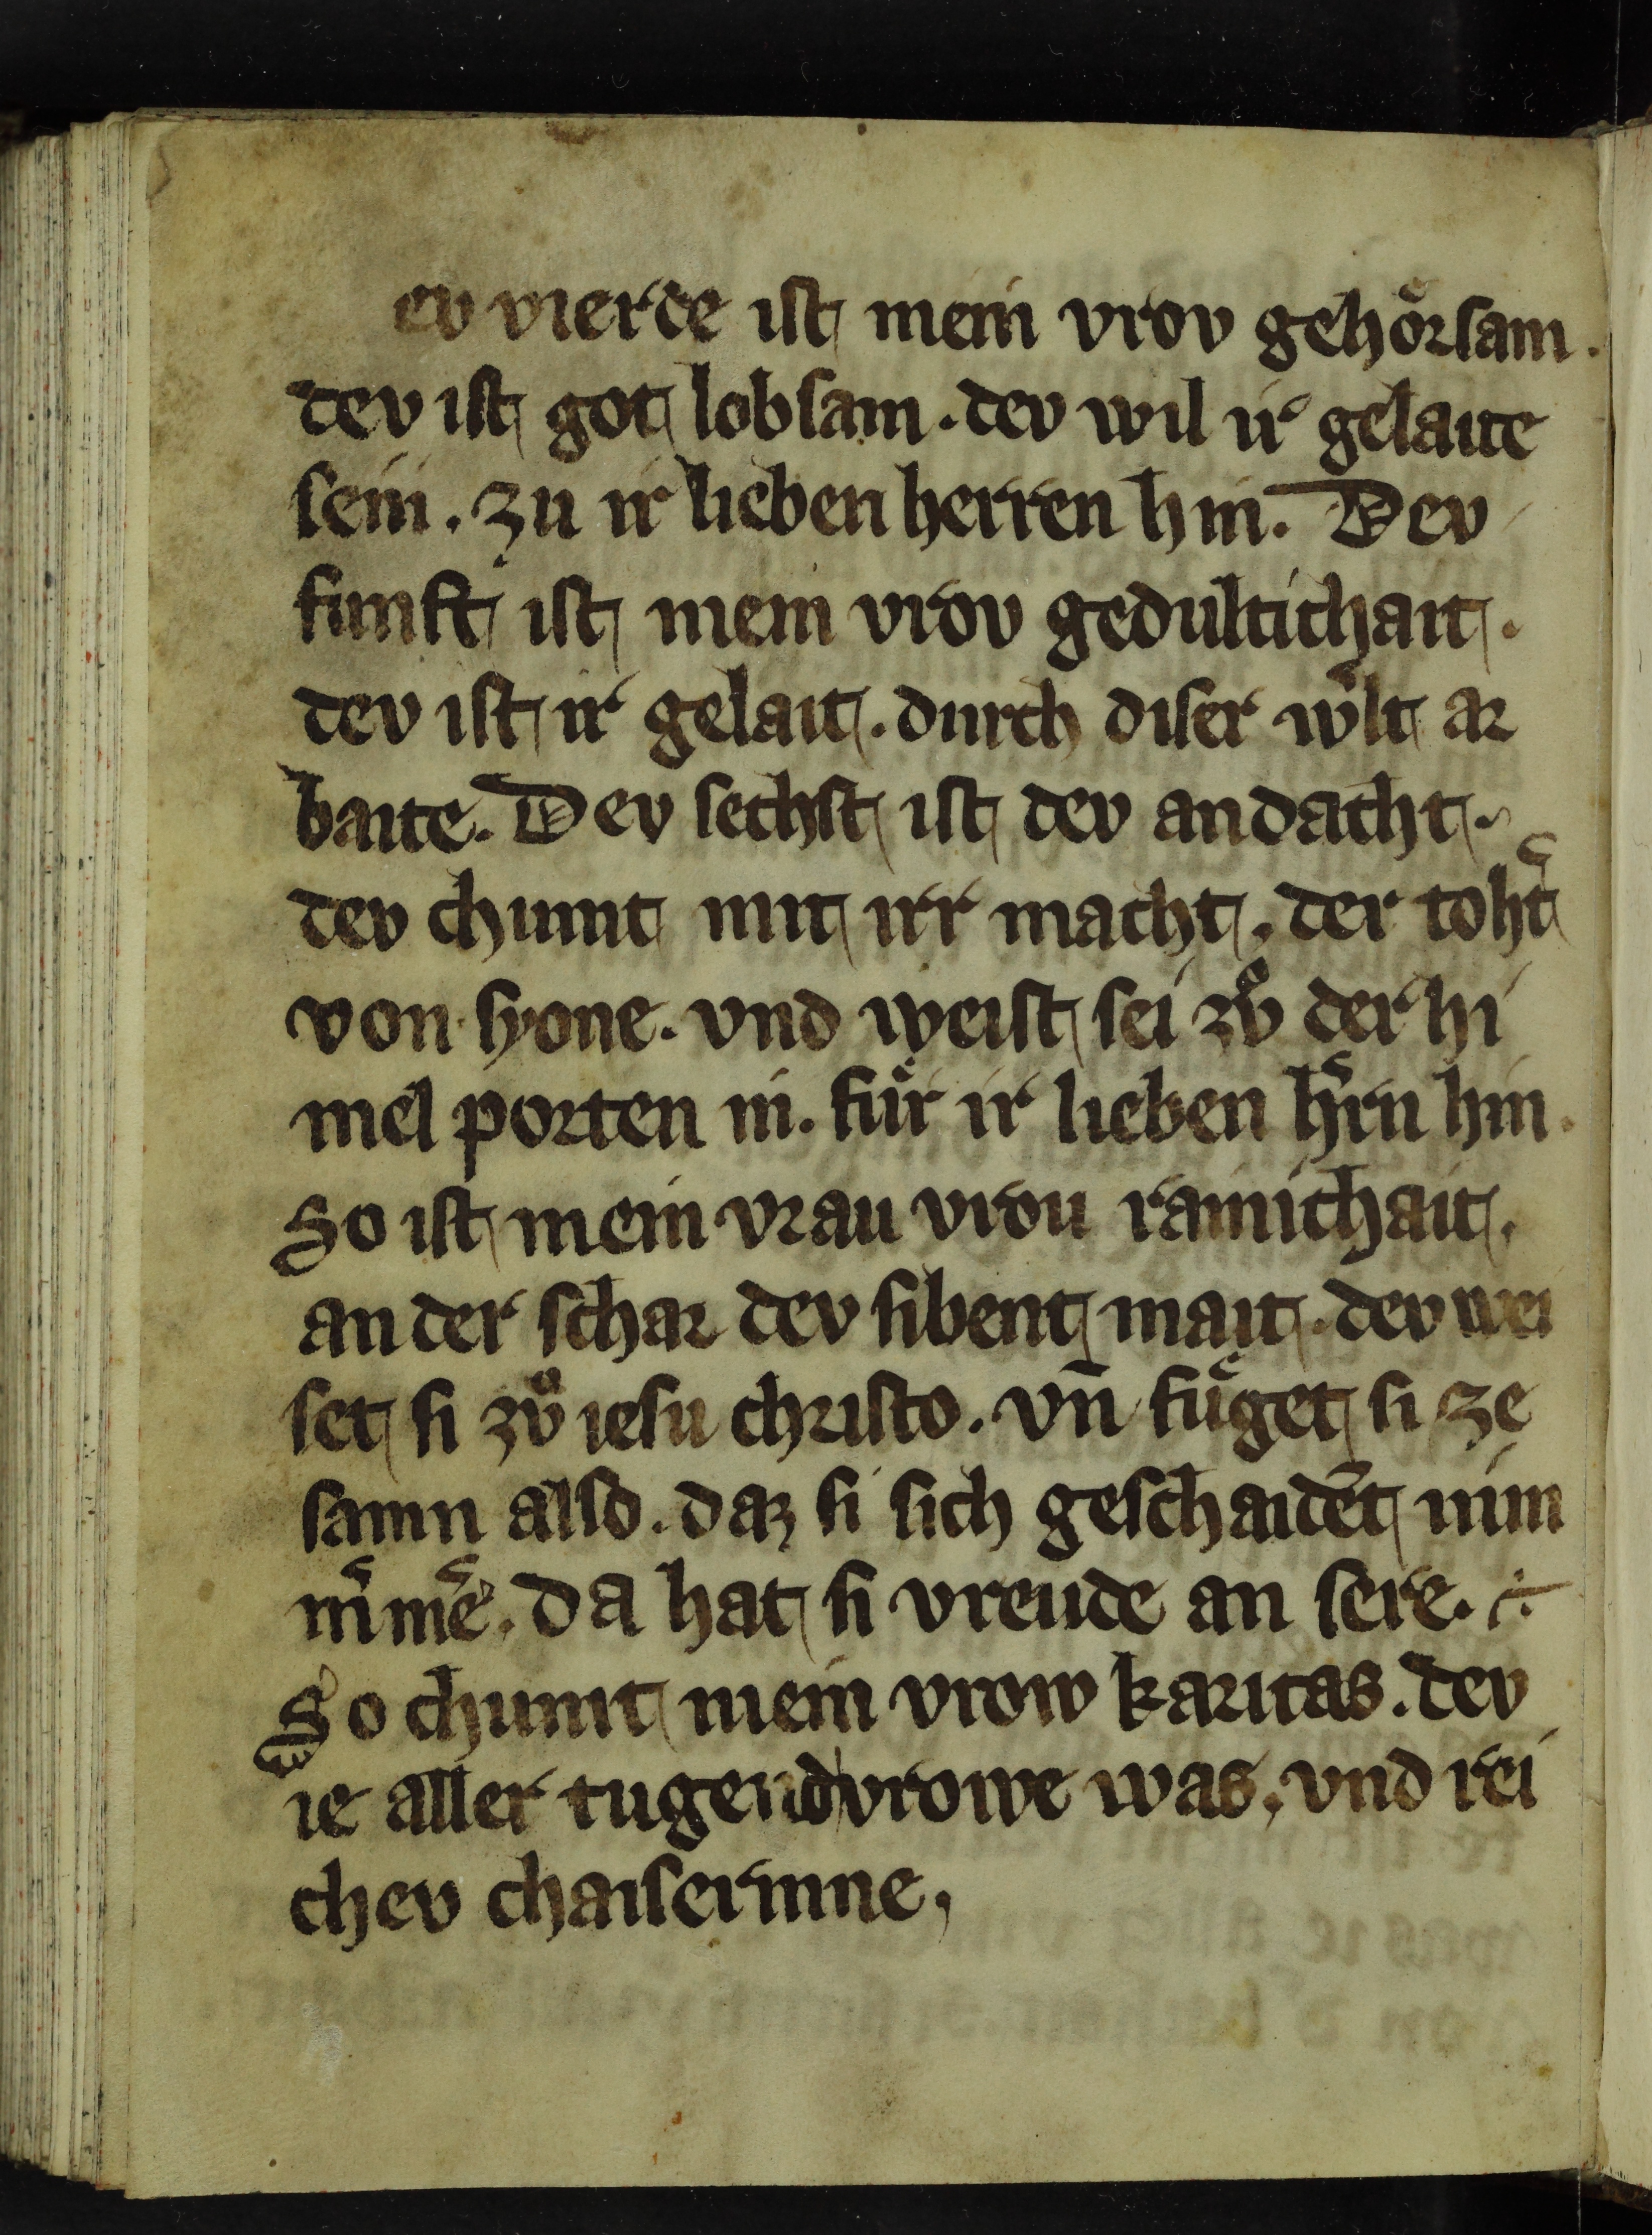 ev vierde ist mein vrov gehoͤrsam.
dev ist got lobsam. dev wil ir gelaite
sein. zu ir lieben herren hin. Dev
funft ist mein vrov gedultichait.
dev ist ir gelait. durch diser wͤlt ar
baite. Dev sechst ist dev andacht.
dev chumt mit irr macht. der toht͛
von syone. vnd weist sei zvͦ der hi
mel porten in. fuͤr ir lieben h͛rn hin.
So ist mein vrau vrou rainichait.
an der schar dev sibent mait. dev wei
set si zvͦ iesu christo. vn̄ fuͤget si ze
samn also. daz si sich geschaidēt nim
m͛ me͛. da hat si vreude an sere.
So chumt mein vrow karitas. dev
ie aller tugend vrowe was. vnd rei
chev chaiserinne.